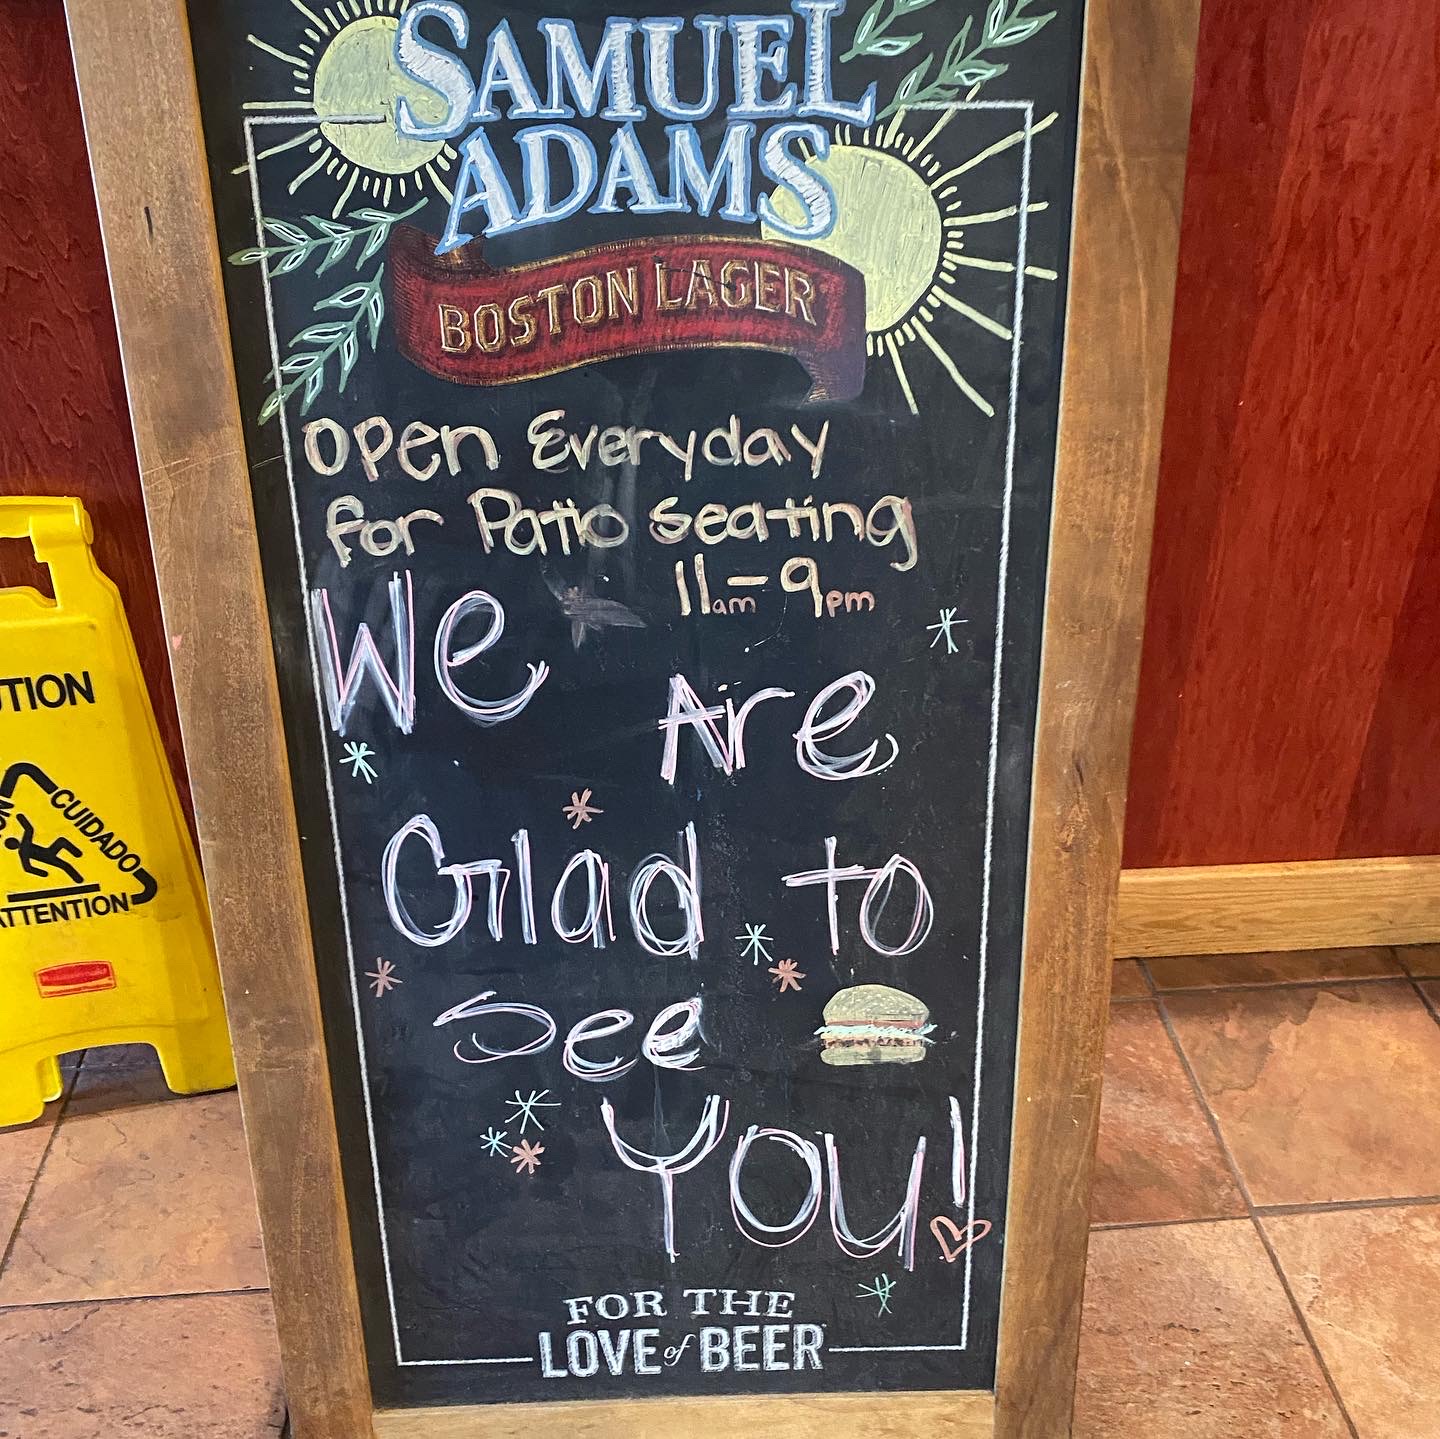 SAMUEL
ADAMS
BOSTON LAGER
Open Everyday
for Patio seating
11am - 9pm
We
Are
Glad to
See
You!
FOR THE
LOVE of BEER
UTION
CUIDADO
ATTENTION